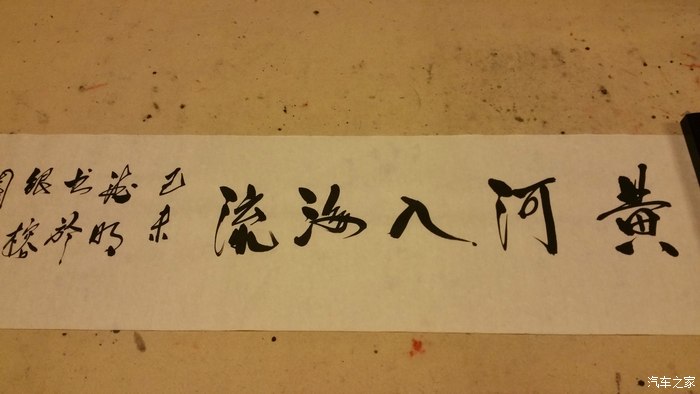 黄河入海流
乙未
明
书於
银榕
汽车之家